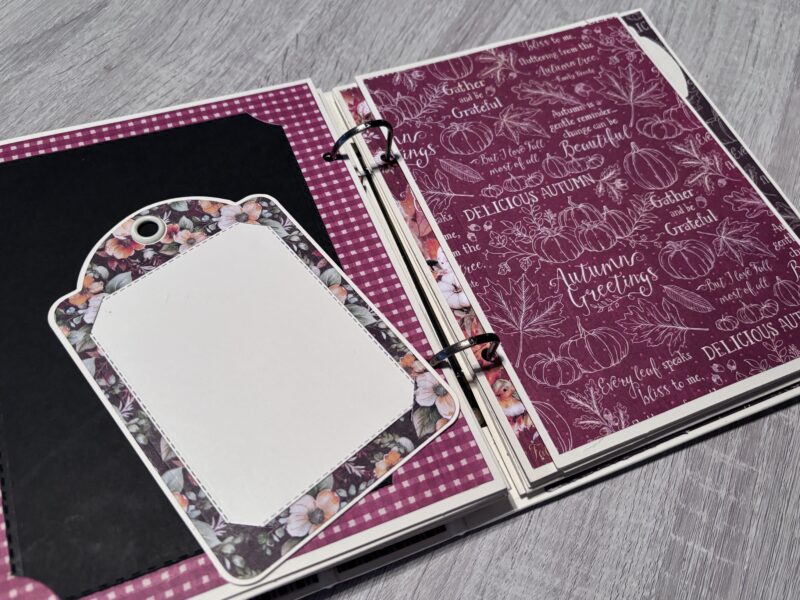 bliss to me,
fluttering from the
Autumn tree.
Emily Bronte
Gather
and be
Grateful
Autumn is a
gentle reminder
change can be
Beautiful
Greetings
But I love Fall
most of all
DELICIOUS AUTUMN
Gather
and be
Grateful
me,
m the
tree.
Autumn
Greetings
But I love Fall
most of all
DELICIOUS AUTUMN
Every leaf speaks
bliss to me,